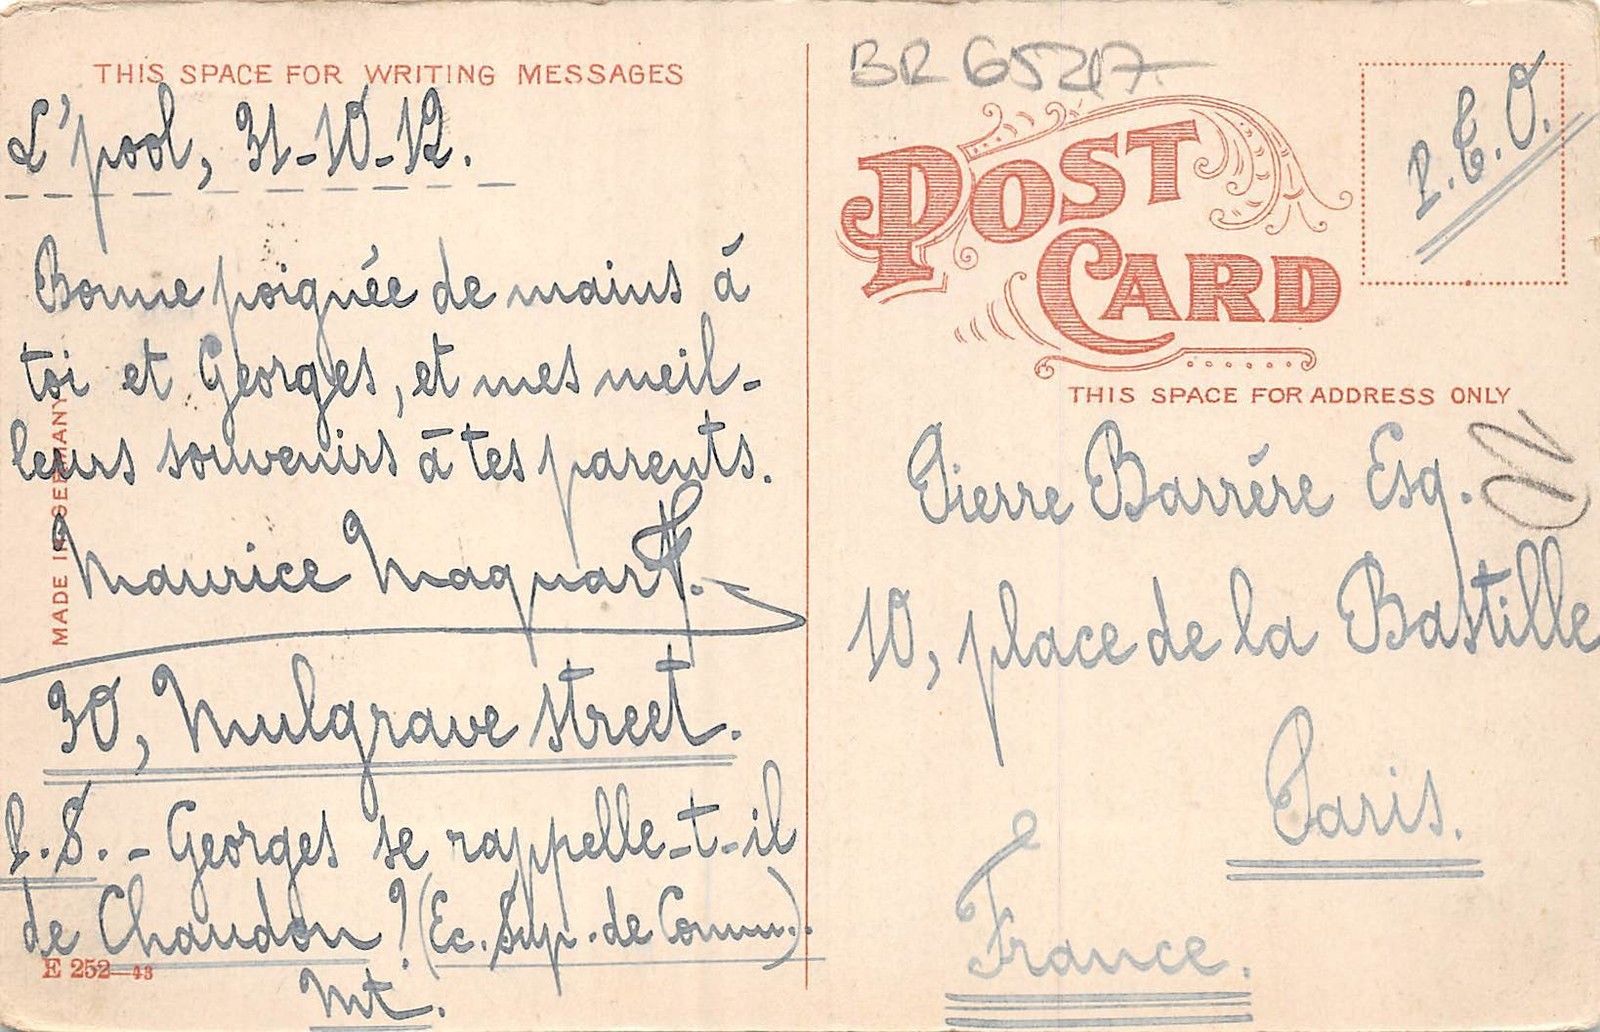 THIS SPACE FOR WRITING MESSAGES
L'pool, 31-10-12.
Bonne poignée de mains à
toi et Georges, et mes meil-
leurs souvenirs à tes parents.
Maurice Maquart.
30, Mulgrave street.
P.S. - Georges se rappelle-t-il
de Chaudon? (Ec. Sup. de Comm.).
Mt.
MADE IN GERMANY
E 252-43
BR 65217
POST
CARD
THIS SPACE FOR ADDRESS ONLY
Pierre Barrére Esq.
10, place de la Bastille
Paris.
France.